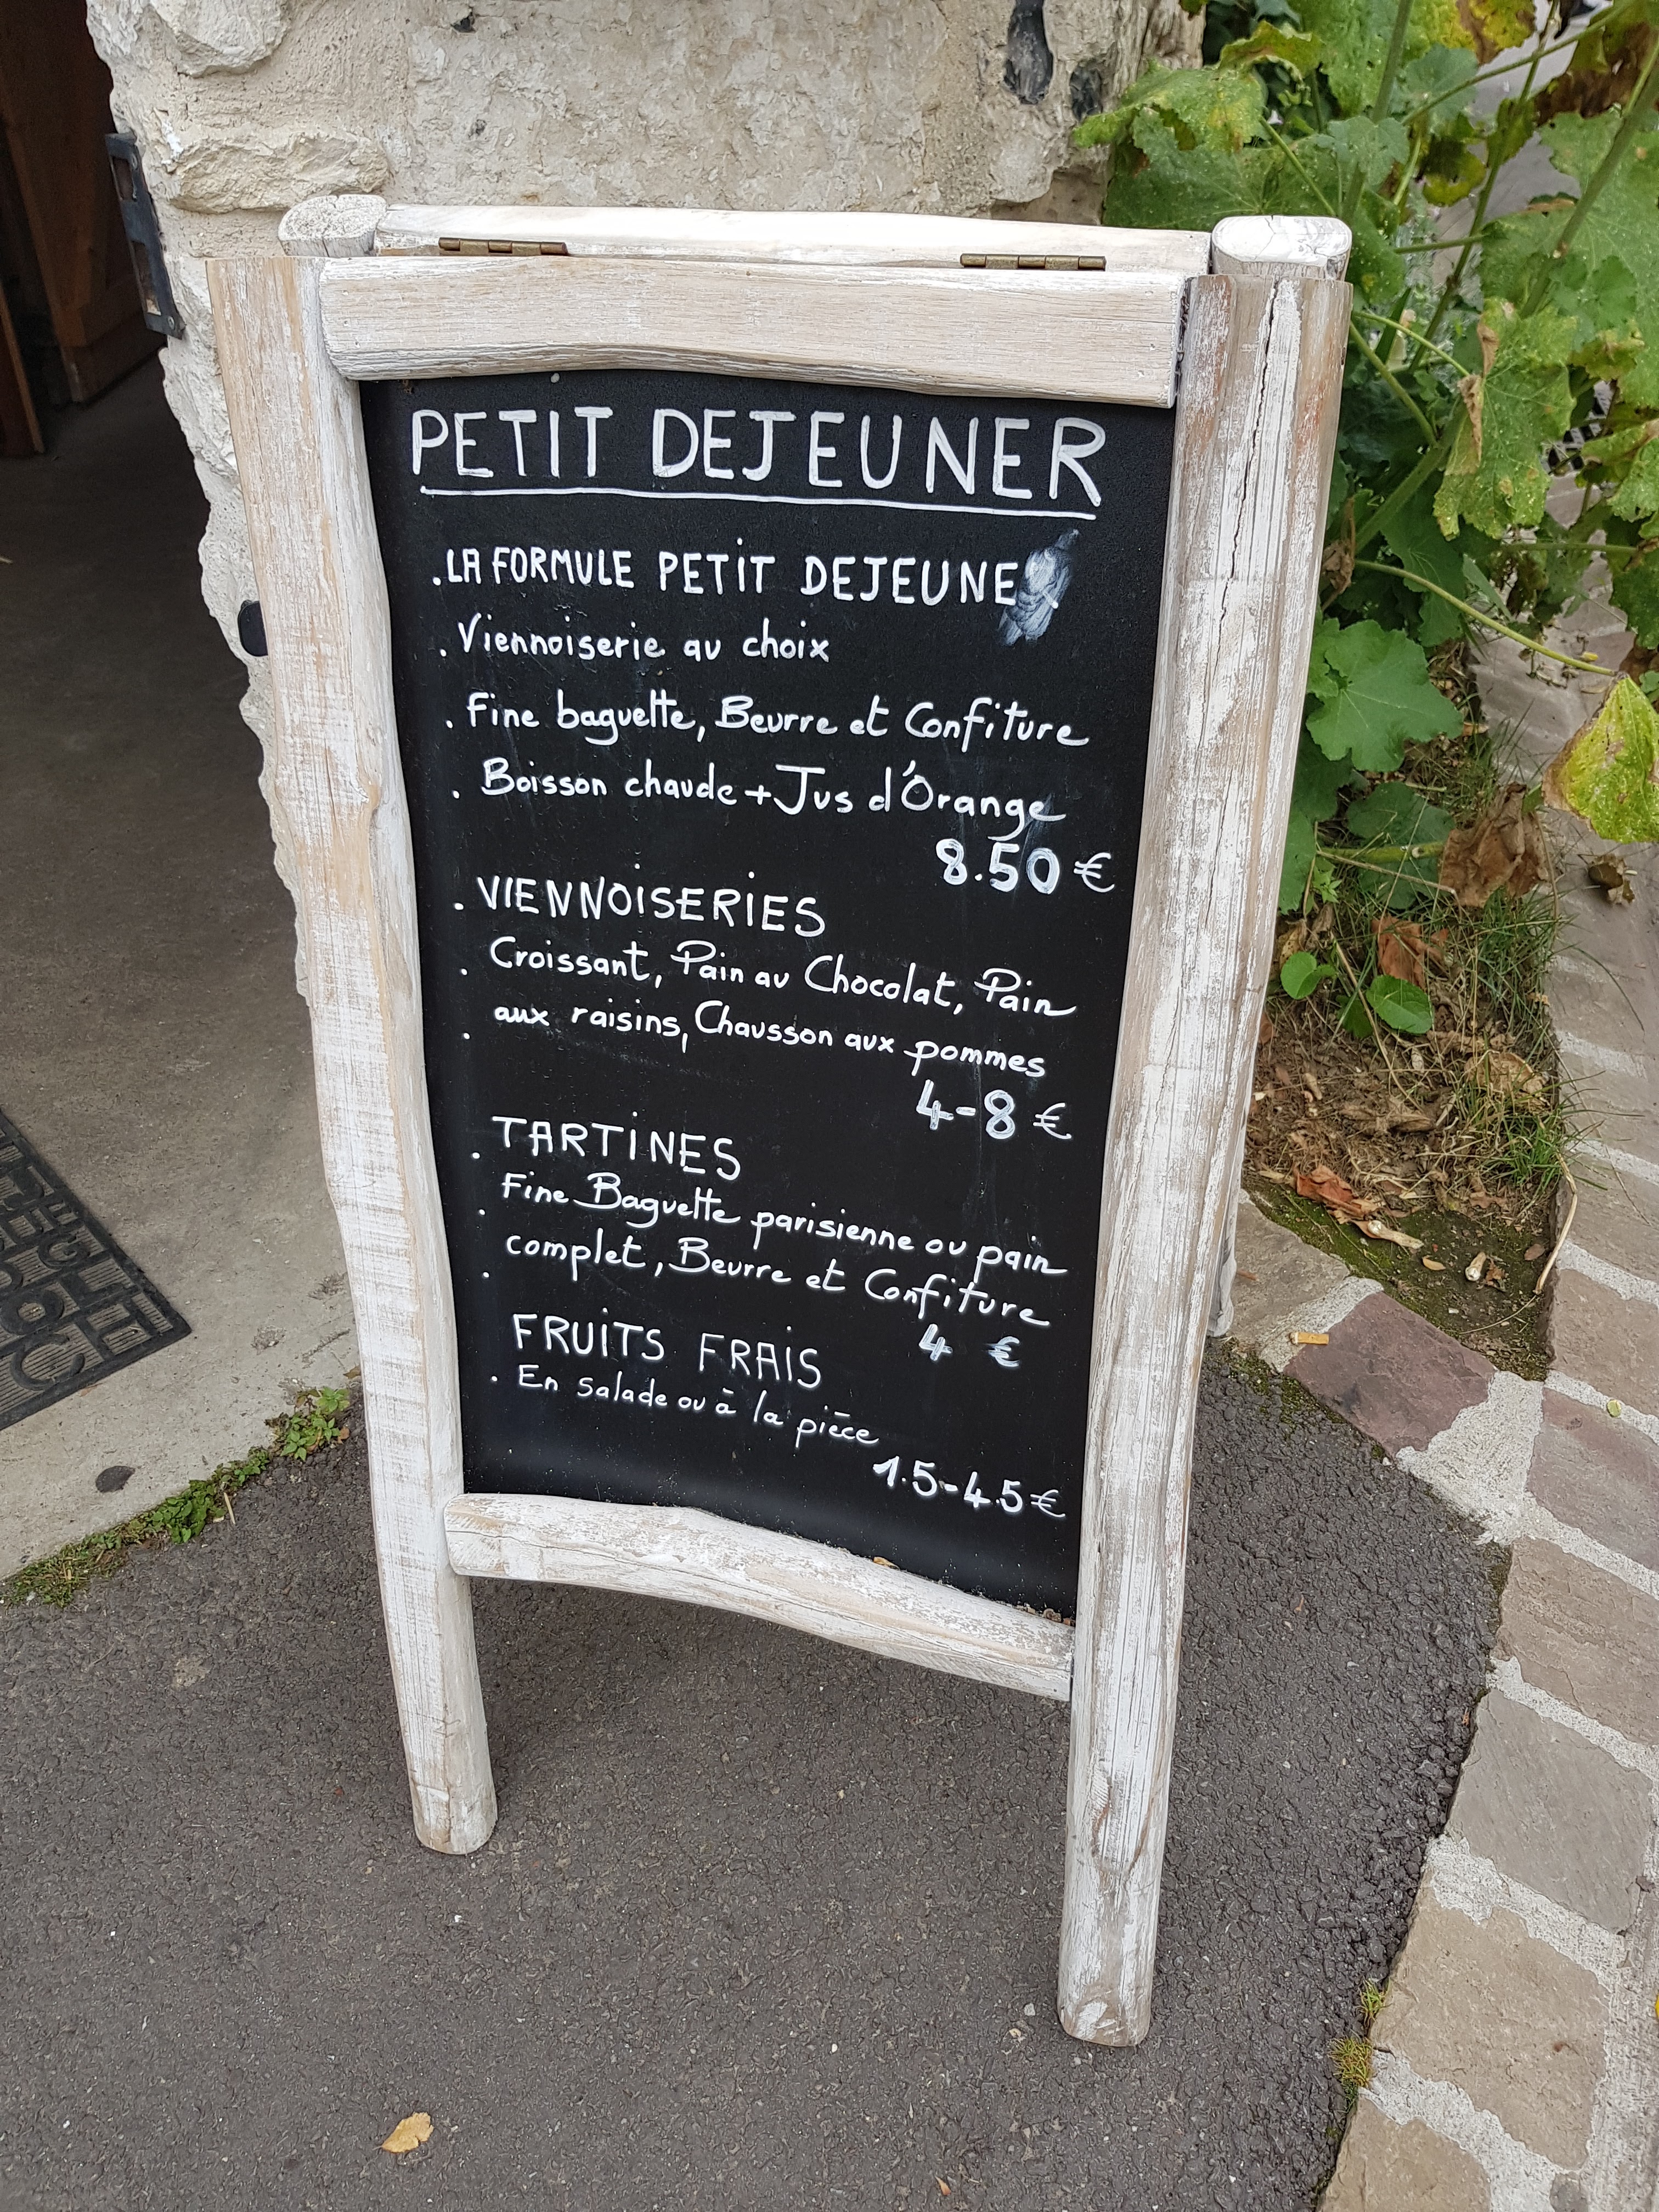 PETIT DEJEUNER
.LA FORMULE PETIT DEJEUNER
. Viennoiserie au choix
. Fine baguette, Beurre et Confiture
. Boisson chaude + Jus d'Orange
8.50 €
. VIENNOISERIES
. Croissant, Pain au Chocolat, Pain
. aux raisins, Chausson aux pommes
4-8 €
. TARTINES
. Fine Baguette parisienne ou pain
. complet, Beurre et Confiture
4 €
FRUITS FRAIS
. En salade ou à la pièce
1.5-4.5 €